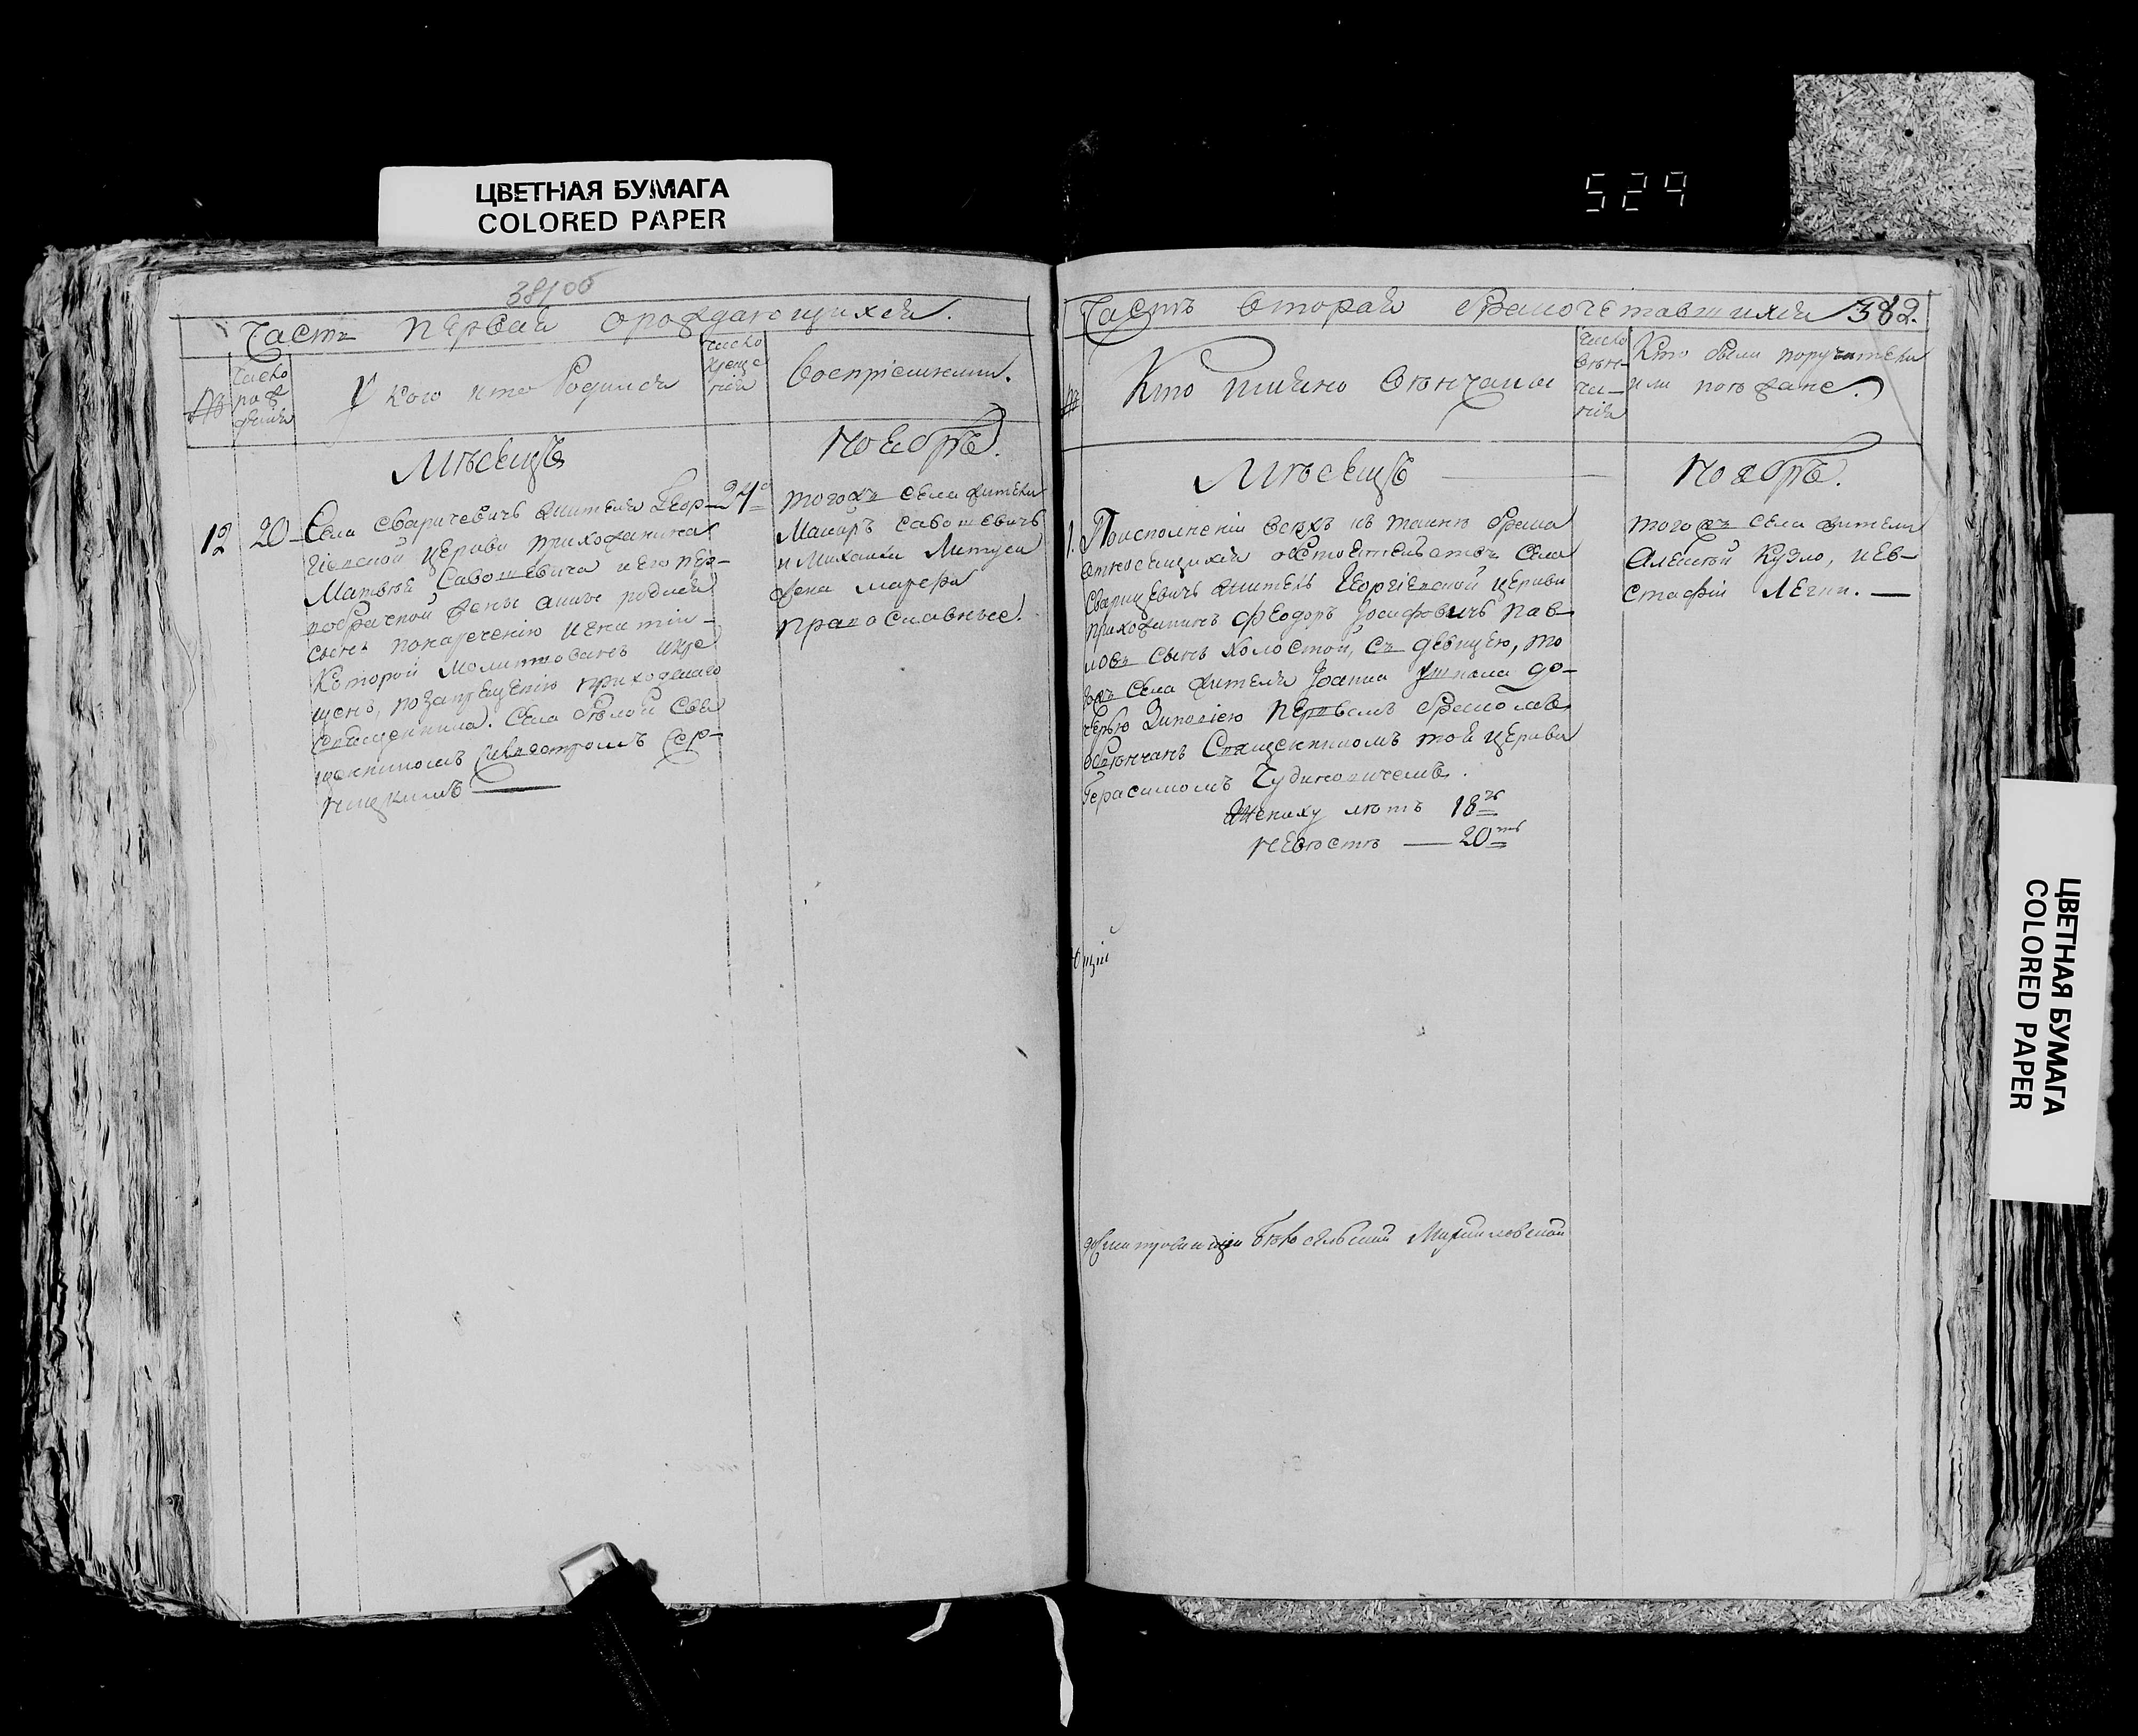 ЦВЕТНАЯ БУМАГА
COLORED PAPER
529
381 об
Часть первая о раждающихся.
№
Число рождения
У кого кто Родился
число крещения
Восприемники.
Мѣсецъ
Ноебръ.
12
20
Села Сваричевичъ жителя Геор-
гіевской Церкви прихожанина
Матвѣя Савошевича и его пер-
вобрачной жены Анны родился
сынъ по наречению Игнатій
Который молитвованъ и кре
щенъ, по запрещению приходскаго
Священника. Села Бѣлой Свя
щенникомъ Сильвестромъ Сер-
ницкимъ
24°
того жъ села жители
Макаръ Савошевичъ
и Михаила Литуса
жена марефа
православные.
Часть вторая Бракочетавшихся
382.
№
Кто имянно Вѣнчаны
Число вѣнчания
Кто были поручители
или поезжане.
Мѣсецъ
Ноябръ.
1. По исполненіи всехъ къ таинѣ брака
относящихся обстоятельствъ Села
Сварицевичъ житель Георгіевской Церкви
прихожанинъ Феодоръ Іосифовичъ Пав-
ловъ сынъ холостой, съ девицею, то
гожъ Села жителя Іоанна до-
черью Зиновіею первымъ бракомъ
обвѣнчанъ Священникомъ той Церкви
Герасимомъ Чудиновичемъ.
Жениху лѣтъ 18ть
Невѣстѣ — 20ть
того жъ Села жители
Алексѣй Кузло, и Ев-
стафій Легки. —
щій
Михайловской
ЦВЕТНАЯ БУМАГА
COLORED PAPER